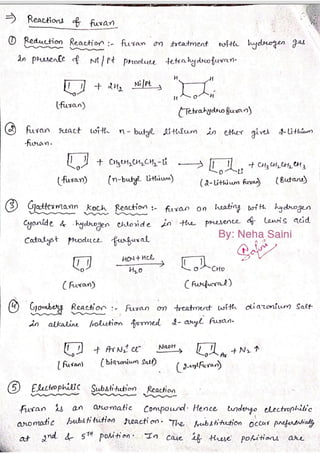 ⇒ Reactions of furan
① Reduction Reaction :- furan on treatment with hydrogen gas
in presence of Ni/Pt produce tetrahydrofuran.
+ 2H2 Ni/Pt → H H H H
O O
(furan) (Tetrahydrofuran)
② furan react with n-butyl lithium in ether gives 2-lithium
furan.
+ CH3CH2CH2CH2-Li → Li + CH3CH2CH2CH3
(furan) (n-butyl lithium) (2-lithium furan) (Butane)
③ Gattermann Koch Reaction :- furan on heating with hydrogen
cyanide & hydrogen chloride in the presence of Lewis acid
catalyst produce furfural
By: Neha Saini
HCN + HCl
H2O
O O CHO
(furan) (furfural)
④ Gomberg Reaction :- furan on treatment with diazonium salt
in alkaline solution formed 2-aryl furan.
+ ArN2+ Cl- NaOH → Ar + N2 ↑
(furan) (diazonium salt) (2-arylfuran)
⑤ Electrophilic Substitution Reaction
furan is an aromatic compound. Hence undergo electrophilic
aromatic substitution reaction. The substitution occur preferentially
at 2nd & 5th position. In case if these positions are